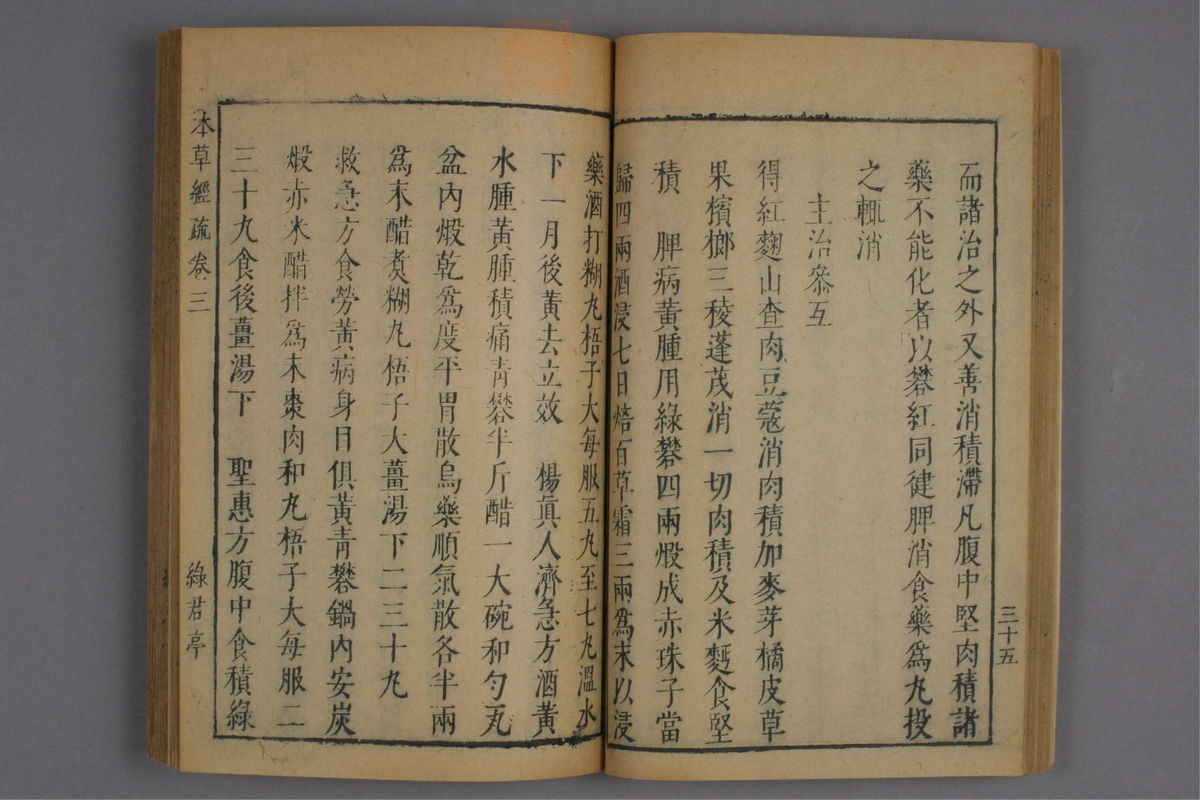 三十五
而諸治之外又善消積滯凡腹中堅肉積諸
藥不能化者以礬紅同健脾消食藥爲丸投
之輒消
主治叅互
得紅麴山查肉豆蔻消肉積加麥芽橘皮草
果檳榔三稜蓬茂消一切肉積及米麪食堅
積　脾病黃腫用綠礬四兩煅成赤珠子當
歸四兩酒浸七日焙百草霜三兩爲末以浸
藥酒打糊丸梧子大每服五丸至七丸溫水
下一月後黃去立效　楊眞人濟急方酒黃
水腫黃腫積痛青礬半斤醋一大碗和勻瓦
盆內煅乾爲度平胃散烏藥順氣散各半兩
爲末醋煮糊丸梧子大薑湯下二三十丸
救急方食勞黃病身目俱黃青礬鍋內安炭
煅赤米醋拌爲末棗肉和丸梧子大每服二
三十丸食後薑湯下　聖惠方腹中食積綠
本草經疏卷三
綠君亭